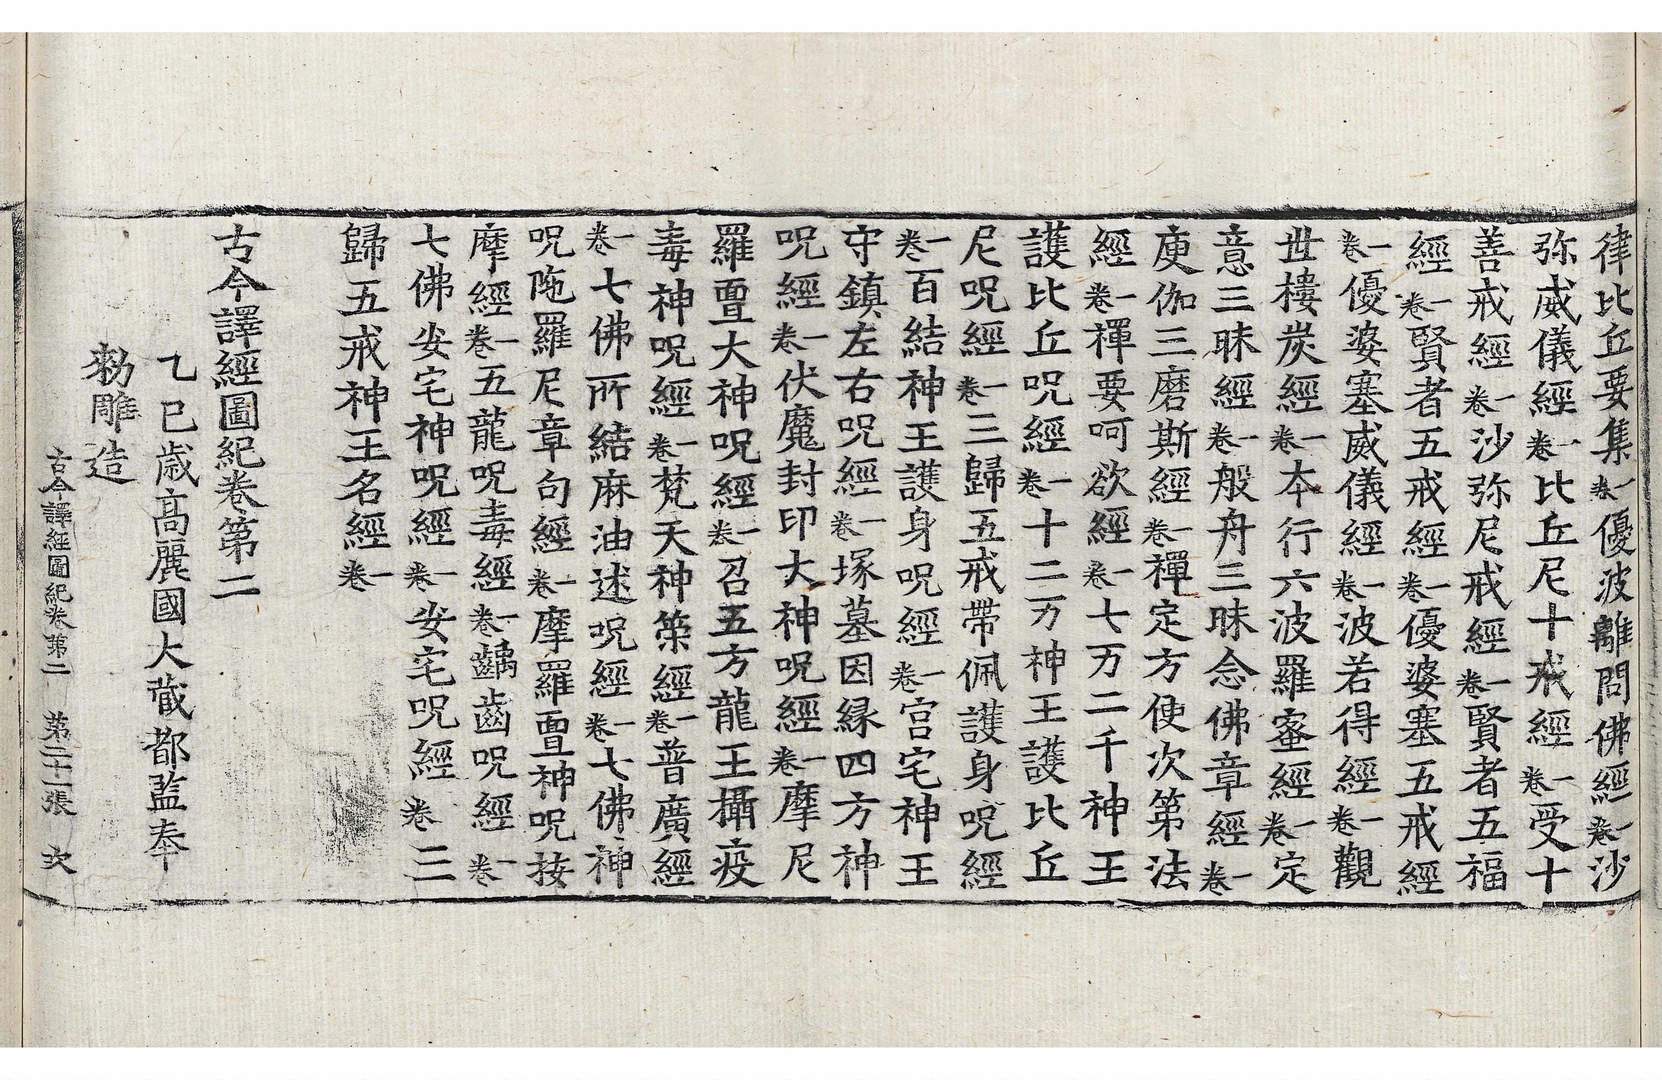 律比丘要集一卷優波離問佛經一卷沙
弥威儀經一卷比丘尼十戒經一卷受十
善戒經一卷沙弥尼戒經一卷賢者五福
經一卷賢者五戒經一卷優婆塞五戒經
一卷優婆塞威儀經一卷波若得經一卷觀
世樓炭經一卷本行六波羅蜜經一卷定
意三昧經一卷般舟三昧念佛章經一卷
庾伽三磨斯經一卷禪定方便次第法
經一卷禪要呵欲經一卷七万二千神王
護比丘呪經一卷十二万神王護比丘
尼呪經一卷三歸五戒帶佩護身呪經
一卷百結神王護身呪經一卷宫宅神王
守鎮左右呪經一卷塚墓因緣四方神
呪經一卷伏魔封印大神呪經一卷摩尼
羅亶大神呪經一卷召五方龍王攝疫
毒神呪經一卷梵天神策經一卷普廣經
一卷七佛所結麻油述呪經一卷七佛神
呪陁羅尼章句經一卷摩羅亶神呪按
摩經一卷五龍呪毒經一卷齲齒呪經一卷
七佛安宅神呪經一卷安宅呪經一卷三
歸五戒神王名經一卷
古今譯經圖紀卷第二
乙巳歳高麗國大藏都監奉
勑雕造
古今譯經圖紀卷第二 第二十二張 次